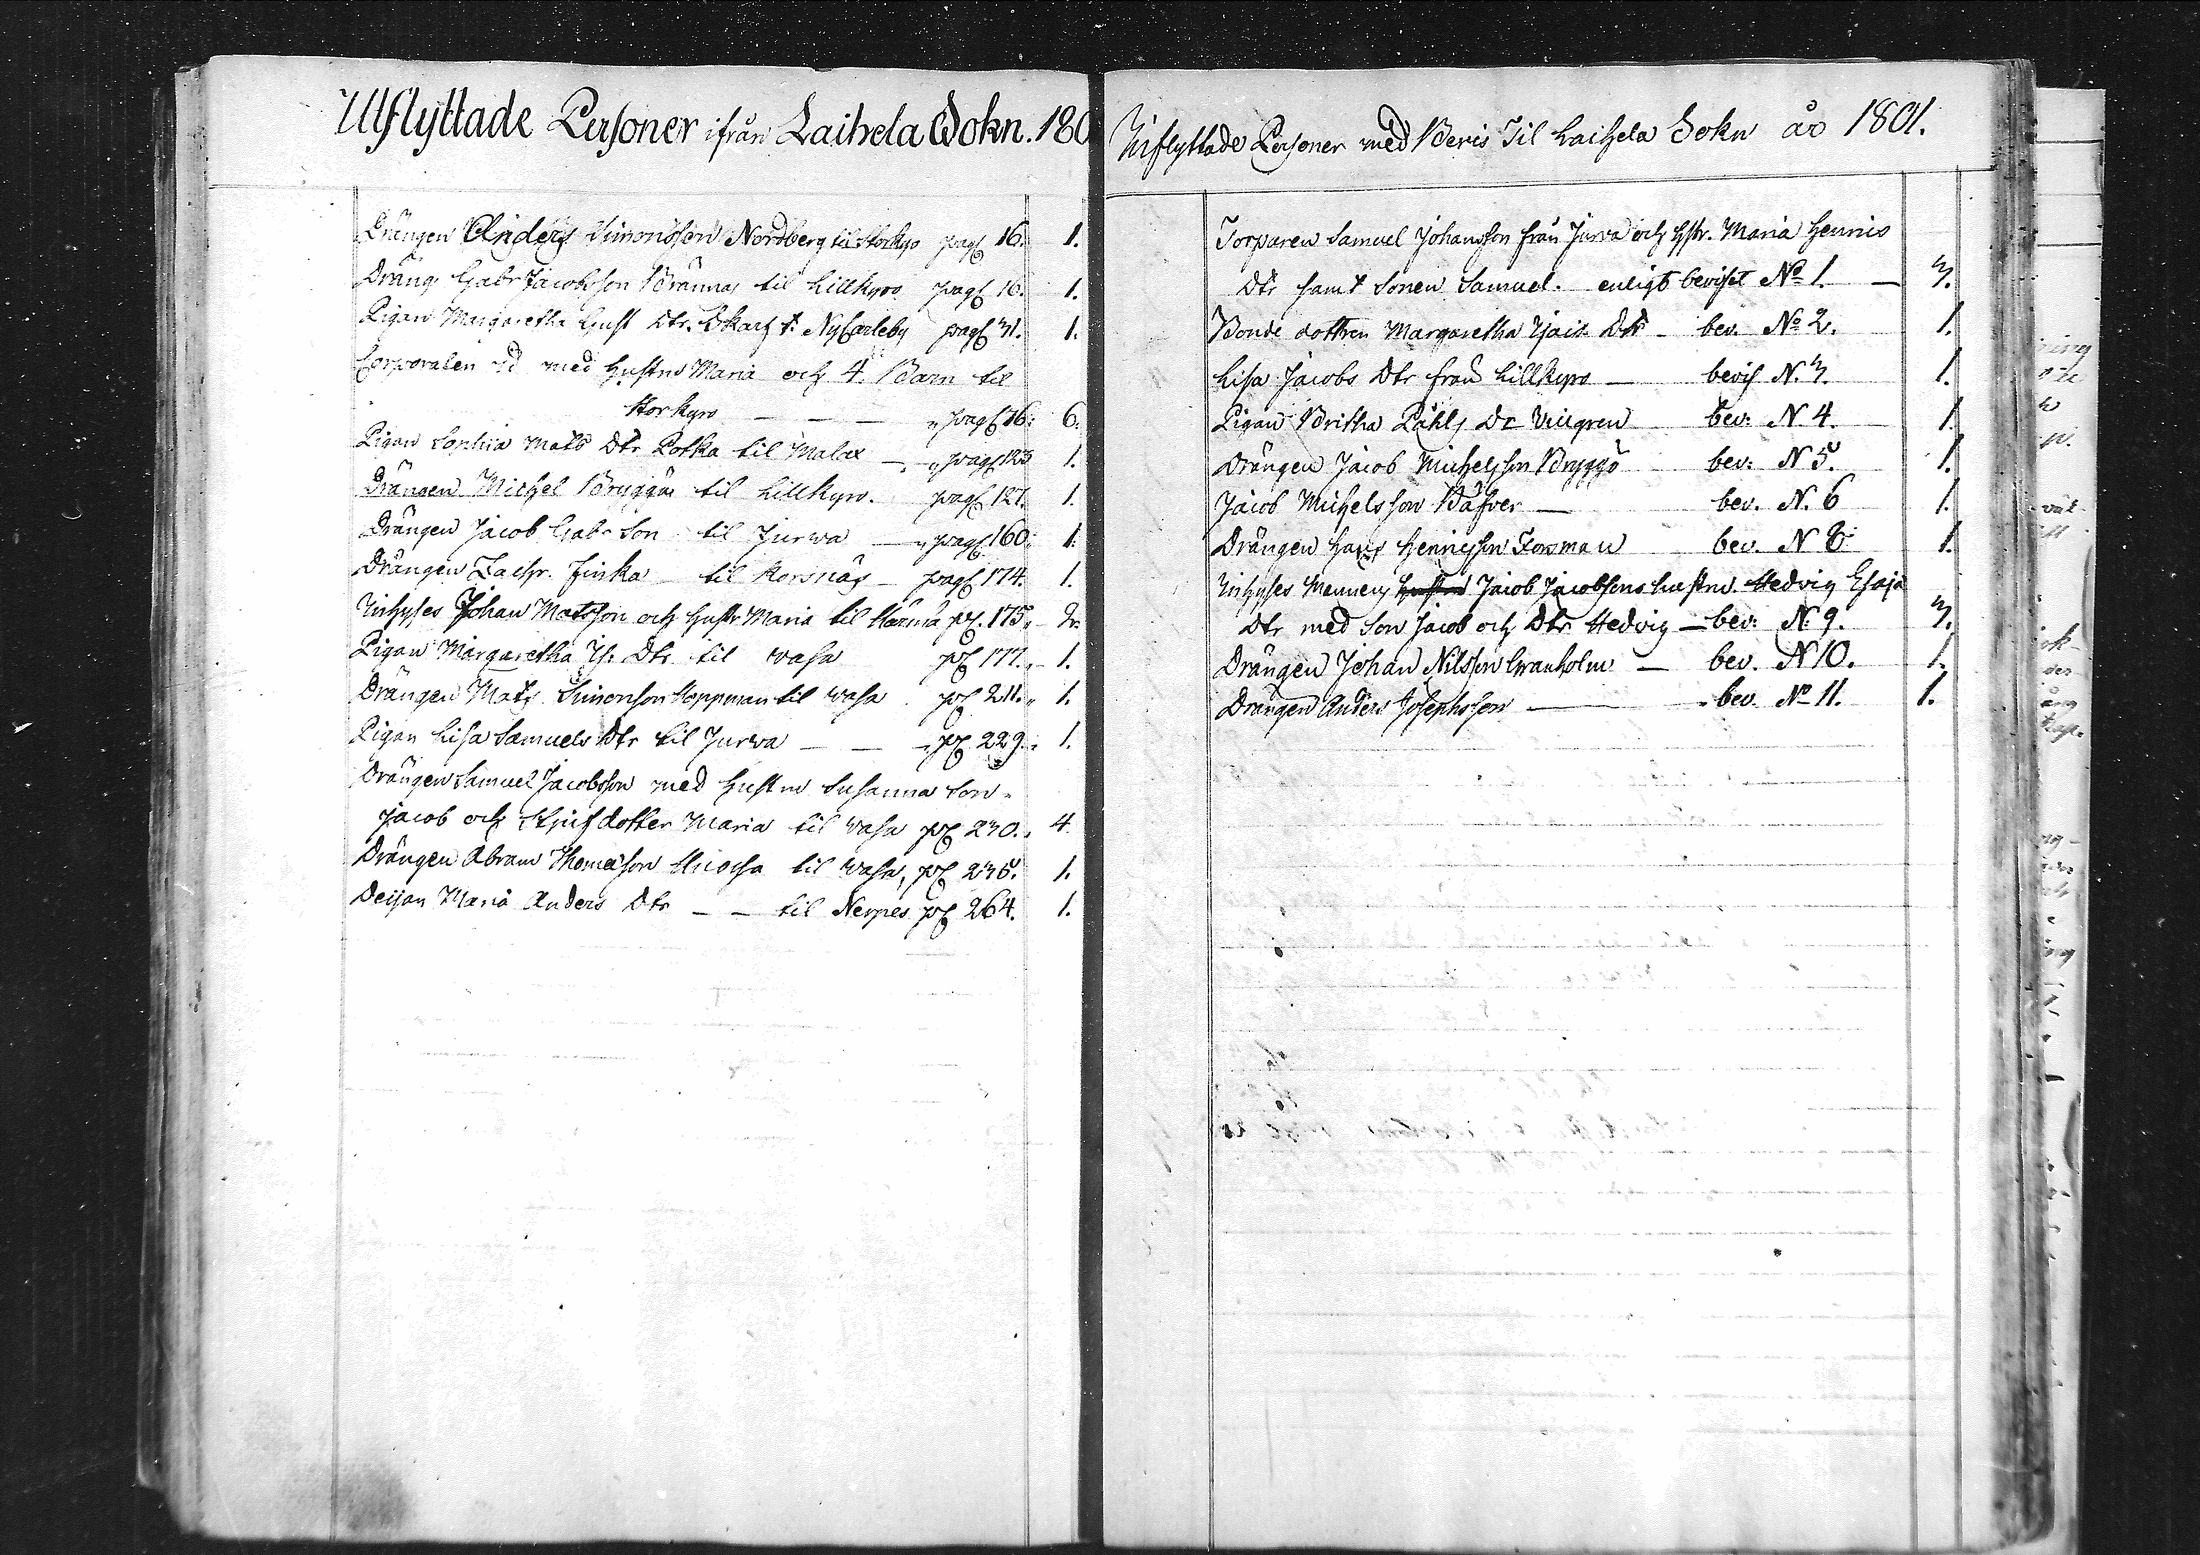 Utflyttade Personer ifrån Laihela Sokn. 180
Drängen Anders Simonsson Nordberg til Storkyro pag 16. 1.
Dräng Gabr Jacobsson Brännas til Lillkyro pag 16. 1.
Pigan Margaretha Gust Dtr. Skarf t. NyCarleby pag 31. 1.
Corporalen med Hustru Maria och 4. Barn til
Storkyro — — — pag 16: 6.
Pigan Sophia Mats Dtr Potka til Malax — pag 123 1.
Drängen Michel Bryggar til Lillkyro. pag 127. 1.
Drängen Jacob Gabr Son til Jurwa — pag 160: 1.
Drängen Zachr. Finka til Korsnäs — pag 174. 1.
Inhyses Johan Matsson och Hustr Maria til Härmä pg. 175. 2.
Pigan Margaretha Is: Dtr til Wasa pg 177. 1.
Drängen Mats Simonson Hoppman til Wasa pg 211. 1.
Pigan Lisa Samuels Dtr til Jurwa — — pg 229. 1.
Drängen Samuel Jacobsson med Hustru Susanna Son
Jacob och Stjufdotter Maria til Wasa pg 230. 4.
Drängen Abram Thomasson til Wasa, pg 235. 1.
Deijan Maria Anders Dtr — — til Nerpes pg 264. 1.
Inflyttade Personer med Bevis Til Laihela Sokn år 1801.
Torparen Samuel Johansson från Jurva och Hstr. Maria Henrics
Dtr samt Sonen Samuel. enligt beviset No 1. — 3.
Bonde dottren Margaretha Isaics Dtr — bev. No 2. 1.
Lisa Jacobs Dtr från Lillkyro — bevis N. 3. 1.
Pigan Britha Påhls Dr Vixgren bev: N 4. 1.
Drängen Jacob Michelsson Bryggö bev: N 5. 1.
Jacob Michelsson Bäfver — bev. N. 6 1.
Drängen Hans Henricsson Forsman bev. N 8 1.
Inhyses Mannens Hustru Jacob Jacobsons hustru Hedvig Esaja
Dtr med Son Jacob och Dtr Hedvig — bev: N. 9. 3.
Drängen Johan Nilsson Granholm — bev. N 10. 1.
Drängen Anders Josephsson — bev. No 11. 1.